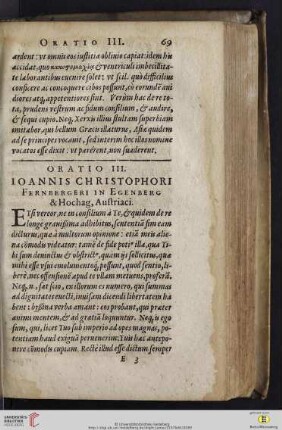 ORATIO III. 69
ardent: vt omnis eos iustitiæ obliuio capiat: idem his
accidat, quod & ventriculi imbecillita-
te laborantibus euenire solet: vt scil. quò difficilius
conficere ac concoquere cibos possunt, eò eorundē aui
diores atq, appetentiores sint. Verùm hac de re to-
ta, prudens vestrum ac fidum consilium, & audire,
& sequi cupio. Neq, Xerxis illius stultam superbiam
imitabor, qui bellum Græcis illaturus, Asiæ quidem
ad se principes vocauit, sed interim hoc illos nomine
vocatos esse dixit: vt parêrent, non suaderent.
ORATIO III.
IOANNIS CHRISTOPHORI
FERNBERGERI IN EGENBERG
& Hochag, Austriaci.
ETsi vereor, ne in consilium à Te, & quidem de re
longè grauissima adhibitus, sententiā sim eam
dicturus, quæ à multorum opinione: etiā meis alie-
na cōmodis videatur: tamē de fide poti⁹ illa, qua Ti-
bi sum deuinctus & obstrict⁹, quam ijs sollicitus, quæ
mihi esse vsui emolumentoq, possunt, quod sentio, li-
berè, nec offensionē apud te vllam metuens, proferā,
Neq, n. sat scio, ex illorum es numero, qui summas
ad dignitates euecti, inuisam dicendi libertatem ha
bent: byssina verba amant: eos probant, qui præter
animi mentem, & ad gratiā loquuntur. Neq, is ego
sum, qui, licet Tuo sub imperio ad opes magnas, po-
tentiam haud exiguā peruenerim: Tuis hæc antepo-
nere cōmodis cupiam. Rectè illud esse dictum semper
E 3